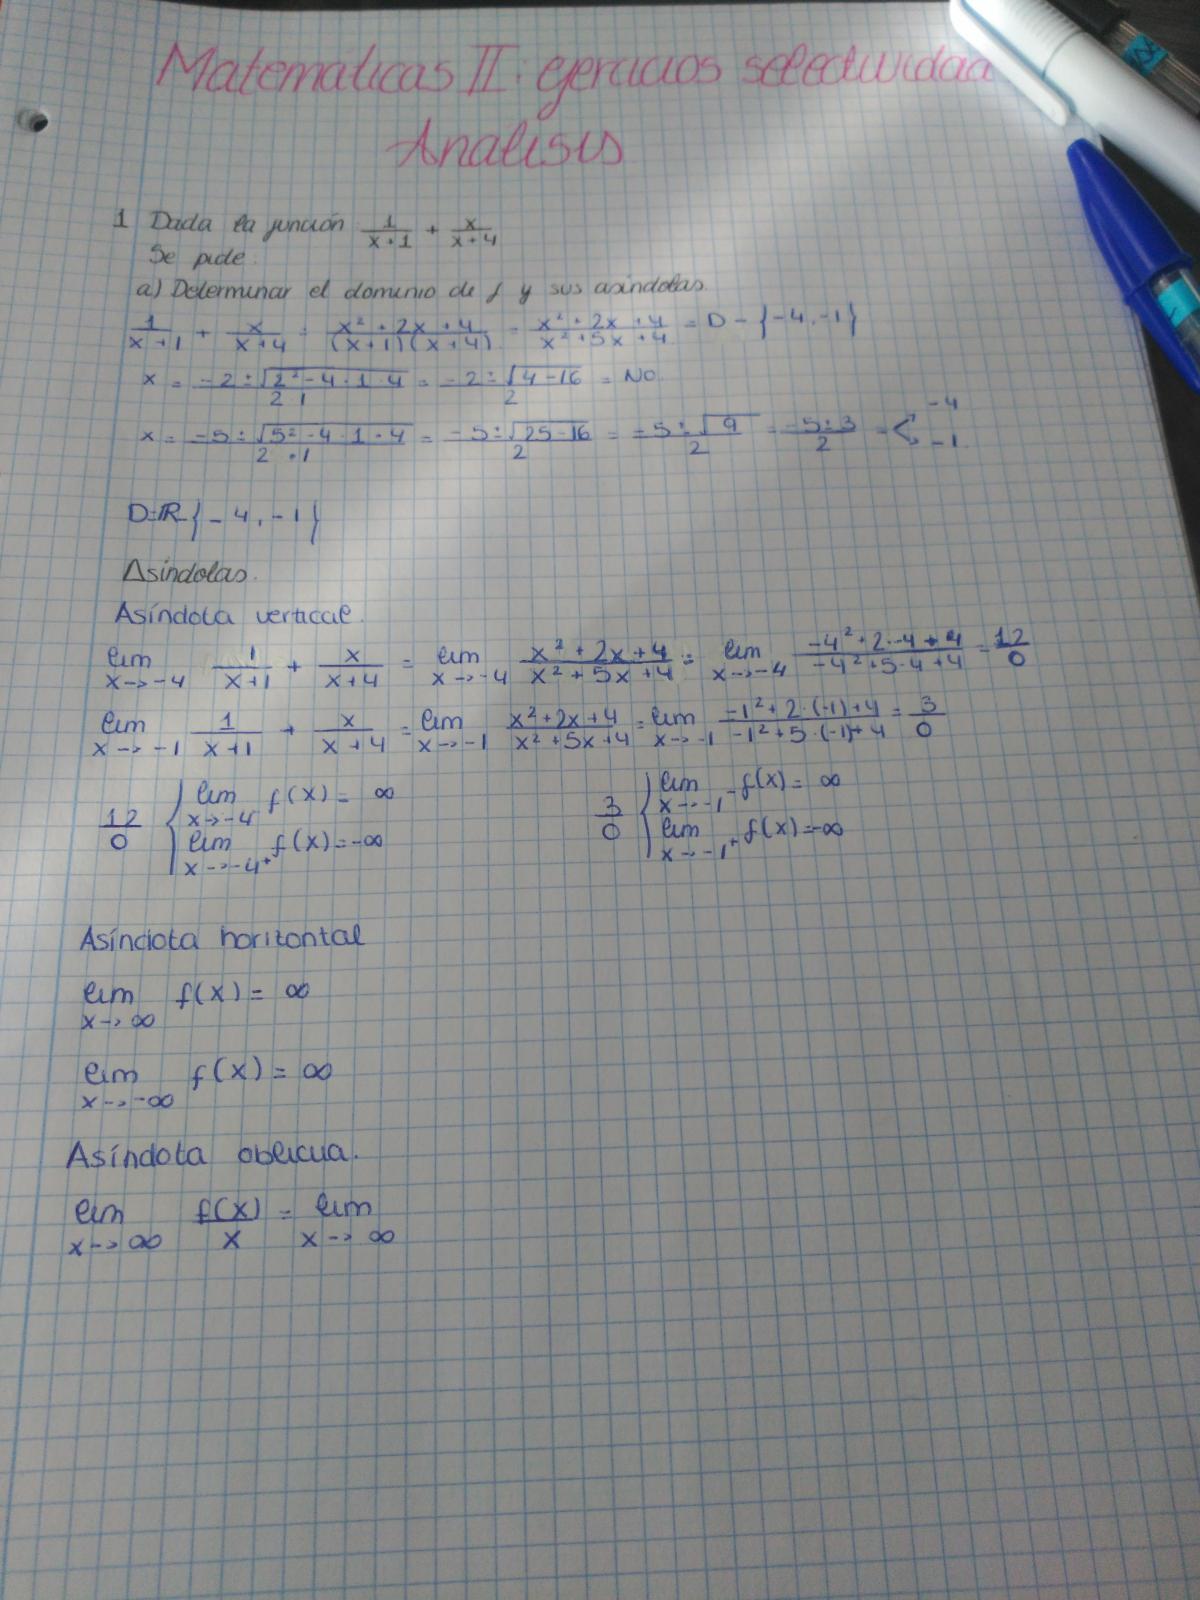 Matemáticas II: ejercicios selectividad
Análisis
1 Dada la función 1/(x+1) + x/(x+4)
Se pide:
a) Determinar el dominio de f y sus asíndotas.
1/(x+1) + x/(x+4) = (x²+2x+4)/((x+1)(x+4)) = (x²+2x+4)/(x²+5x+4) = D - {-4,-1}
x = (-2±√(2²-4·1·4))/(2·1) = (-2±√(4-16))/2 = No.
x = (-5±√(5²-4·1·4))/(2·1) = (-5±√(25-16))/2 = (-5±√9)/2 = (-5±3)/2 = < -4 -1
D=ℝ-{-4,-1}
Asíndotas.
Asíndota vertical.
lim x→-4 1/(x+1) + x/(x+4) = lim x→-4 (x²+2x+4)/(x²+5x+4) = lim x→-4 (-4²+2·-4+4)/(-4²+5·4+4) = 12/0
lim x→-1 1/(x+1) + x/(x+4) = lim x→-1 (x²+2x+4)/(x²+5x+4) = lim x→-1 (-1²+2·(-1)+4)/(-1²+5·(-1)+4) = 3/0
12/0 { lim x→-4⁻ f(x) = ∞
lim x→-4⁺ f(x) = -∞
3/0 { lim x→-1⁻ f(x) = ∞
lim x→-1⁺ f(x) = -∞
Asíndota horitontal
lim x→∞ f(x) = ∞
lim x→-∞ f(x) = ∞
Asíndota oblicua.
lim x→∞ f(x)/x = lim x→∞